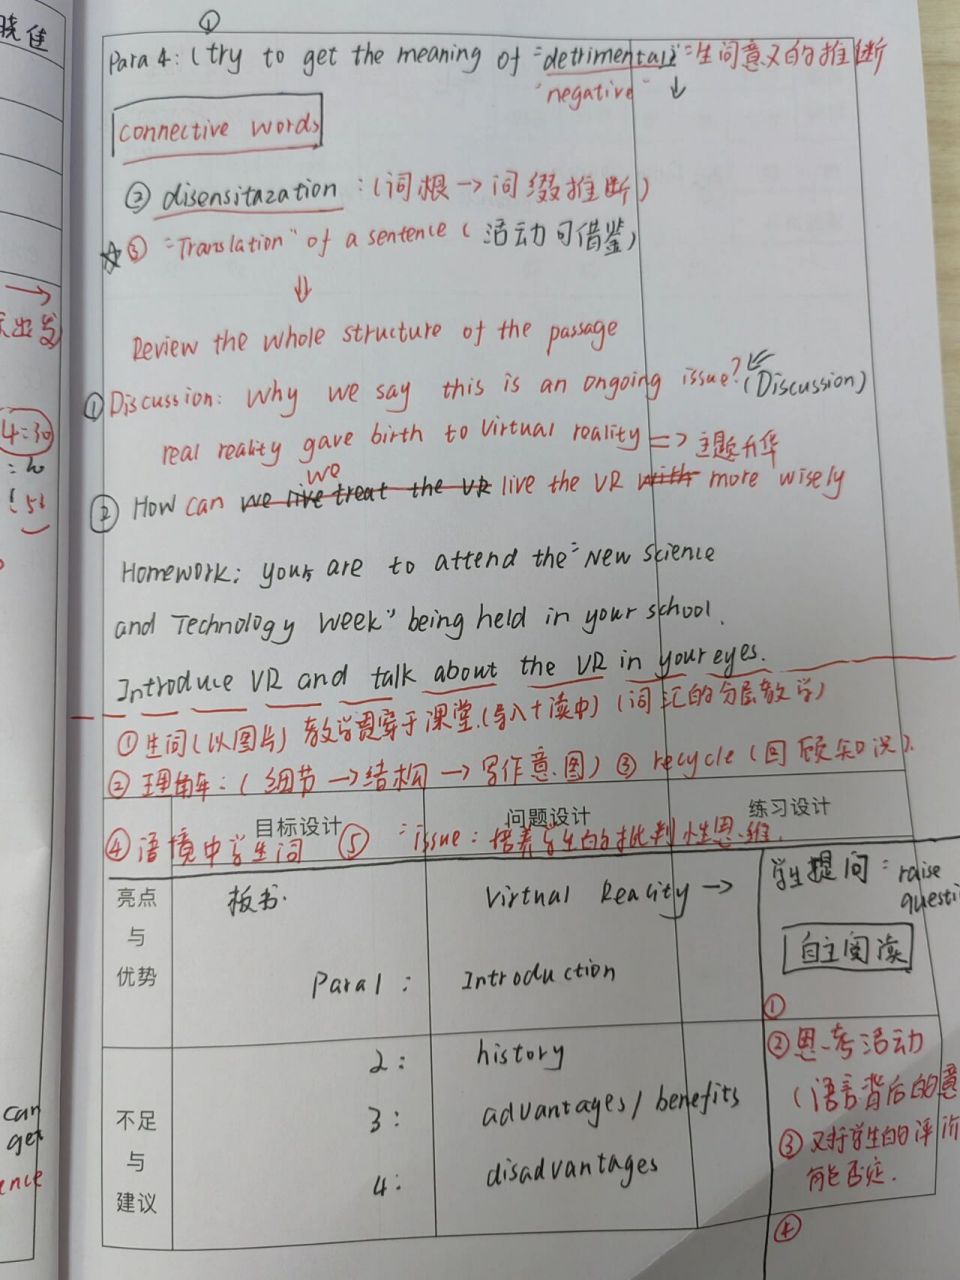 晓佳
①
Para 4: (try to get the meaning of "detrimental" = 生词意义的推断
"negative" ↓
connective words
② disensitazation : (词根 → 词缀推断)
☆ ③ "Translation" of a sentence ( 活动可借鉴)
⇓
Review the whole structure of the passage
① Discussion: Why we say this is an ongoing issue? (Discussion)
real reality gave birth to virtual reality => 主题升华
we
② How can we live treat the VR live the VR with more wisely
Homework: your are to attend the "New science
and Technology week" being held in your school.
Introduce VR and talk about the VR in your eyes.
① 生词(以图片) 教学贯穿于课堂.(导入+读中) (词汇的分层教学)
② 理解: ( 细节 → 结构 → 写作意图) ③ recycle (回顾知识).
目标设计 问题设计 练习设计
④ 语境中学生词 ⑤ "issue: 培养学生的批判性思维.
亮点
与
优势
板书.
Virtual Reality →
学生提问: raise
questi
自主阅读
Para 1: Introduction
①
2: history
②思考活动
(语言背后的意
3: advantages/ benefits
③ 对学生的评价
能否定.
4: disadvantages
④
不足
与
建议
→
出发
4:30
can
get
ence